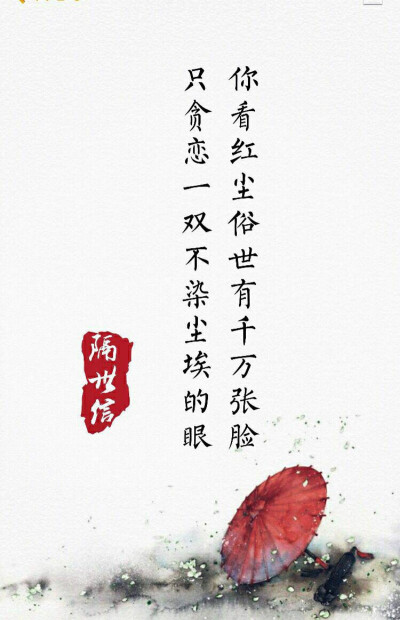 你看红尘俗世有千万张脸
只贪恋一双不染尘埃的眼
隔世信